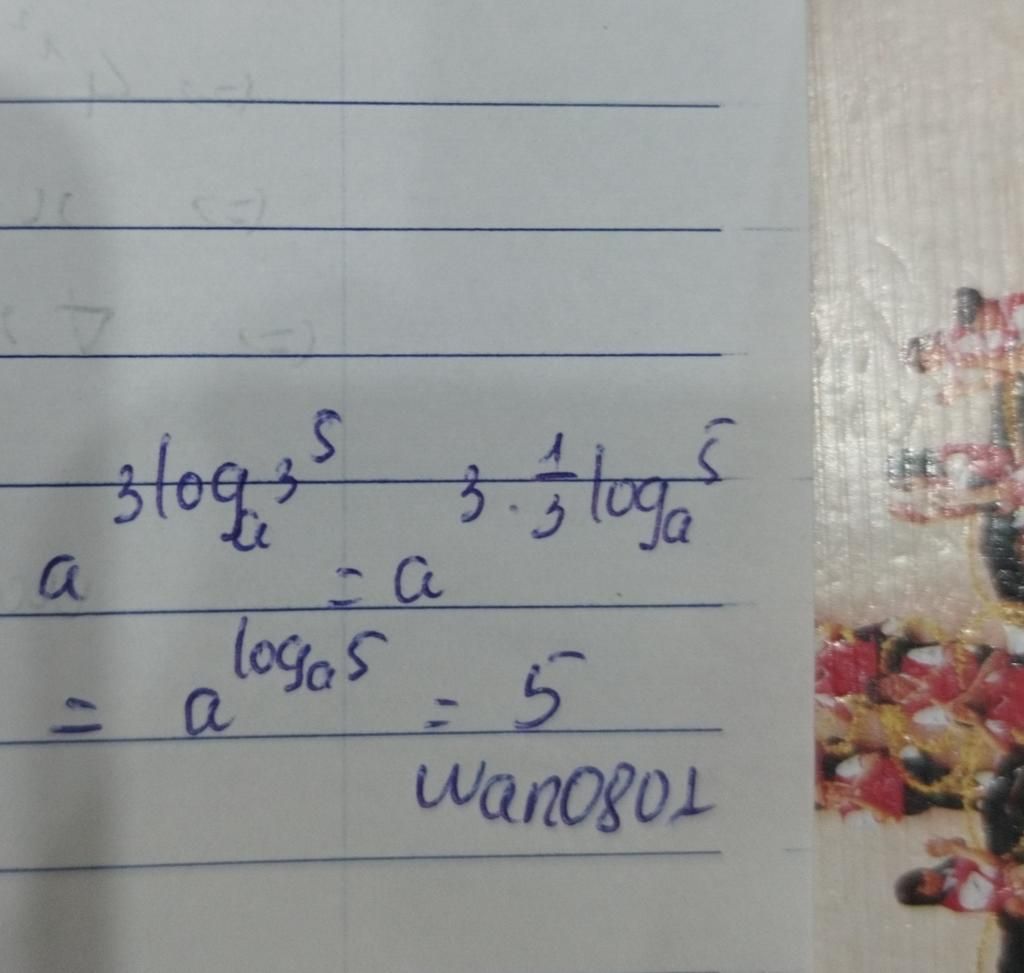 a^{3 log_{a^3} 5} = a^{3 . \frac{1}{3} log_a 5}
= a^{log_a 5} = 5
wan0801